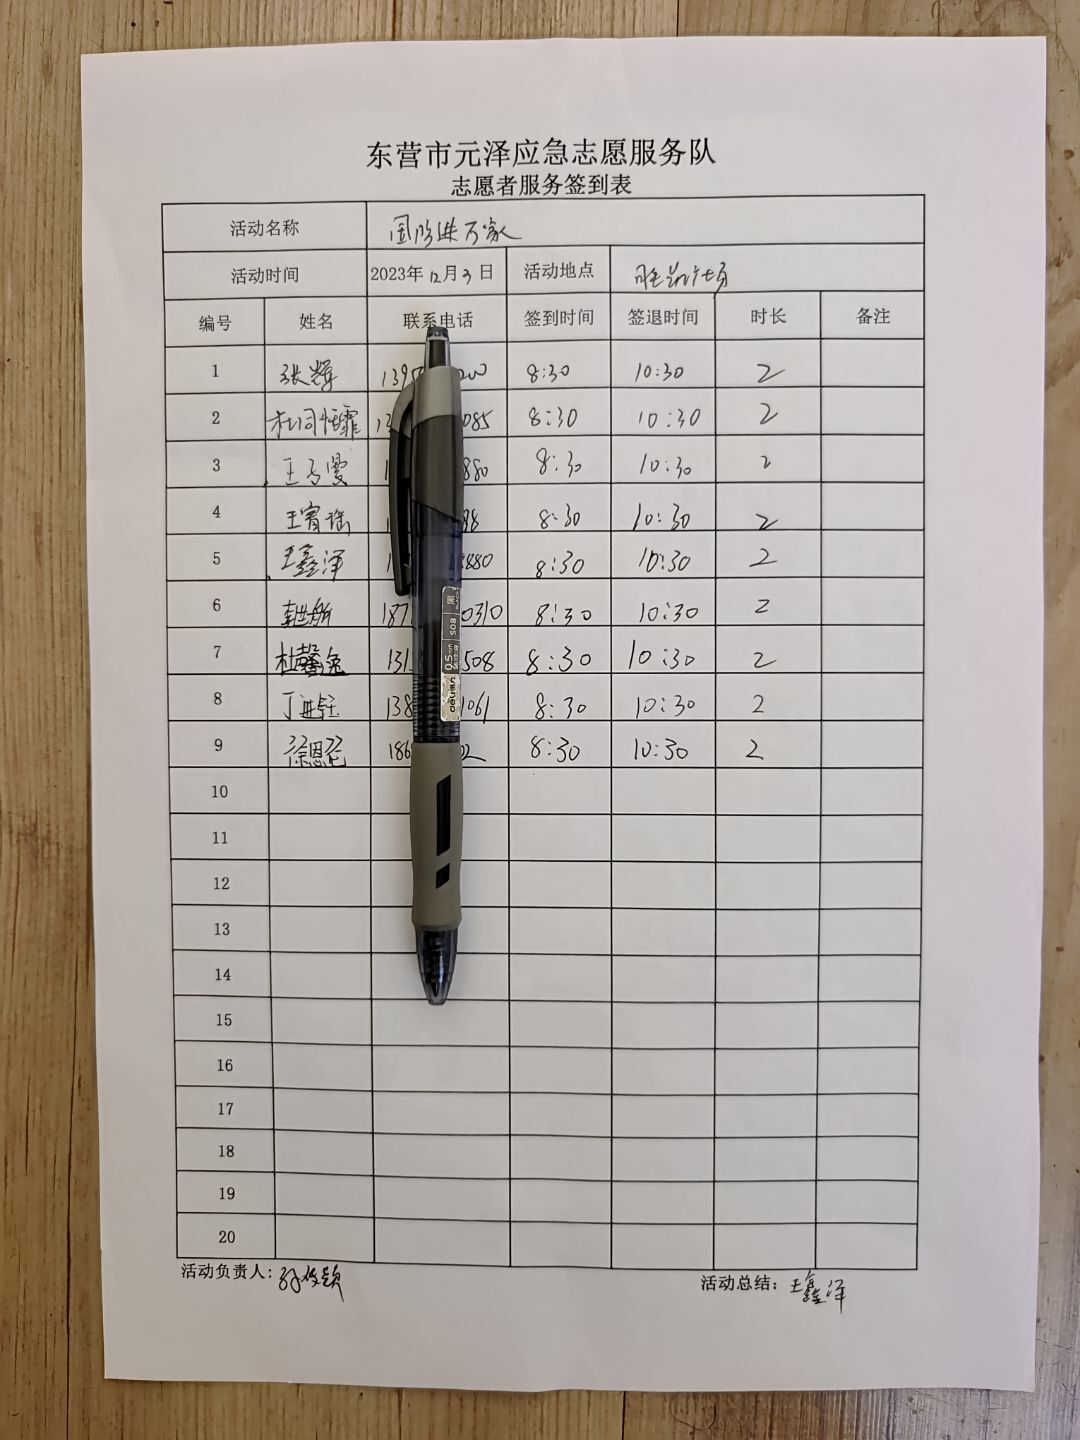 东营市元泽应急志愿服务队
志愿者服务签到表
活动名称 国防进万家
活动时间 2023年12月3日 活动地点 胜凯广场
编号 姓名 联系电话 签到时间 签退时间 时长 备注
1 张辉 139 00 8:30 10:30 2
2 杜同恬霏 13 085 8:30 10:30 2
3 王子雯 1 880 8:30 10:30 2
4 王宥瑶 1 98 8:30 10:30 2
5 王鑫泽 1 880 8:30 10:30 2
6 187 0310 8:30 10:30 2
7 杜馨 131 508 8:30 10:30 2
8 丁进钰 138 1061 8:30 10:30 2
9 徐恩 186 02 8:30 10:30 2
10
11
12
13
14
15
16
17
18
19
20
活动负责人: 孙 活动总结: 王鑫泽
deli
0.5mm
S08